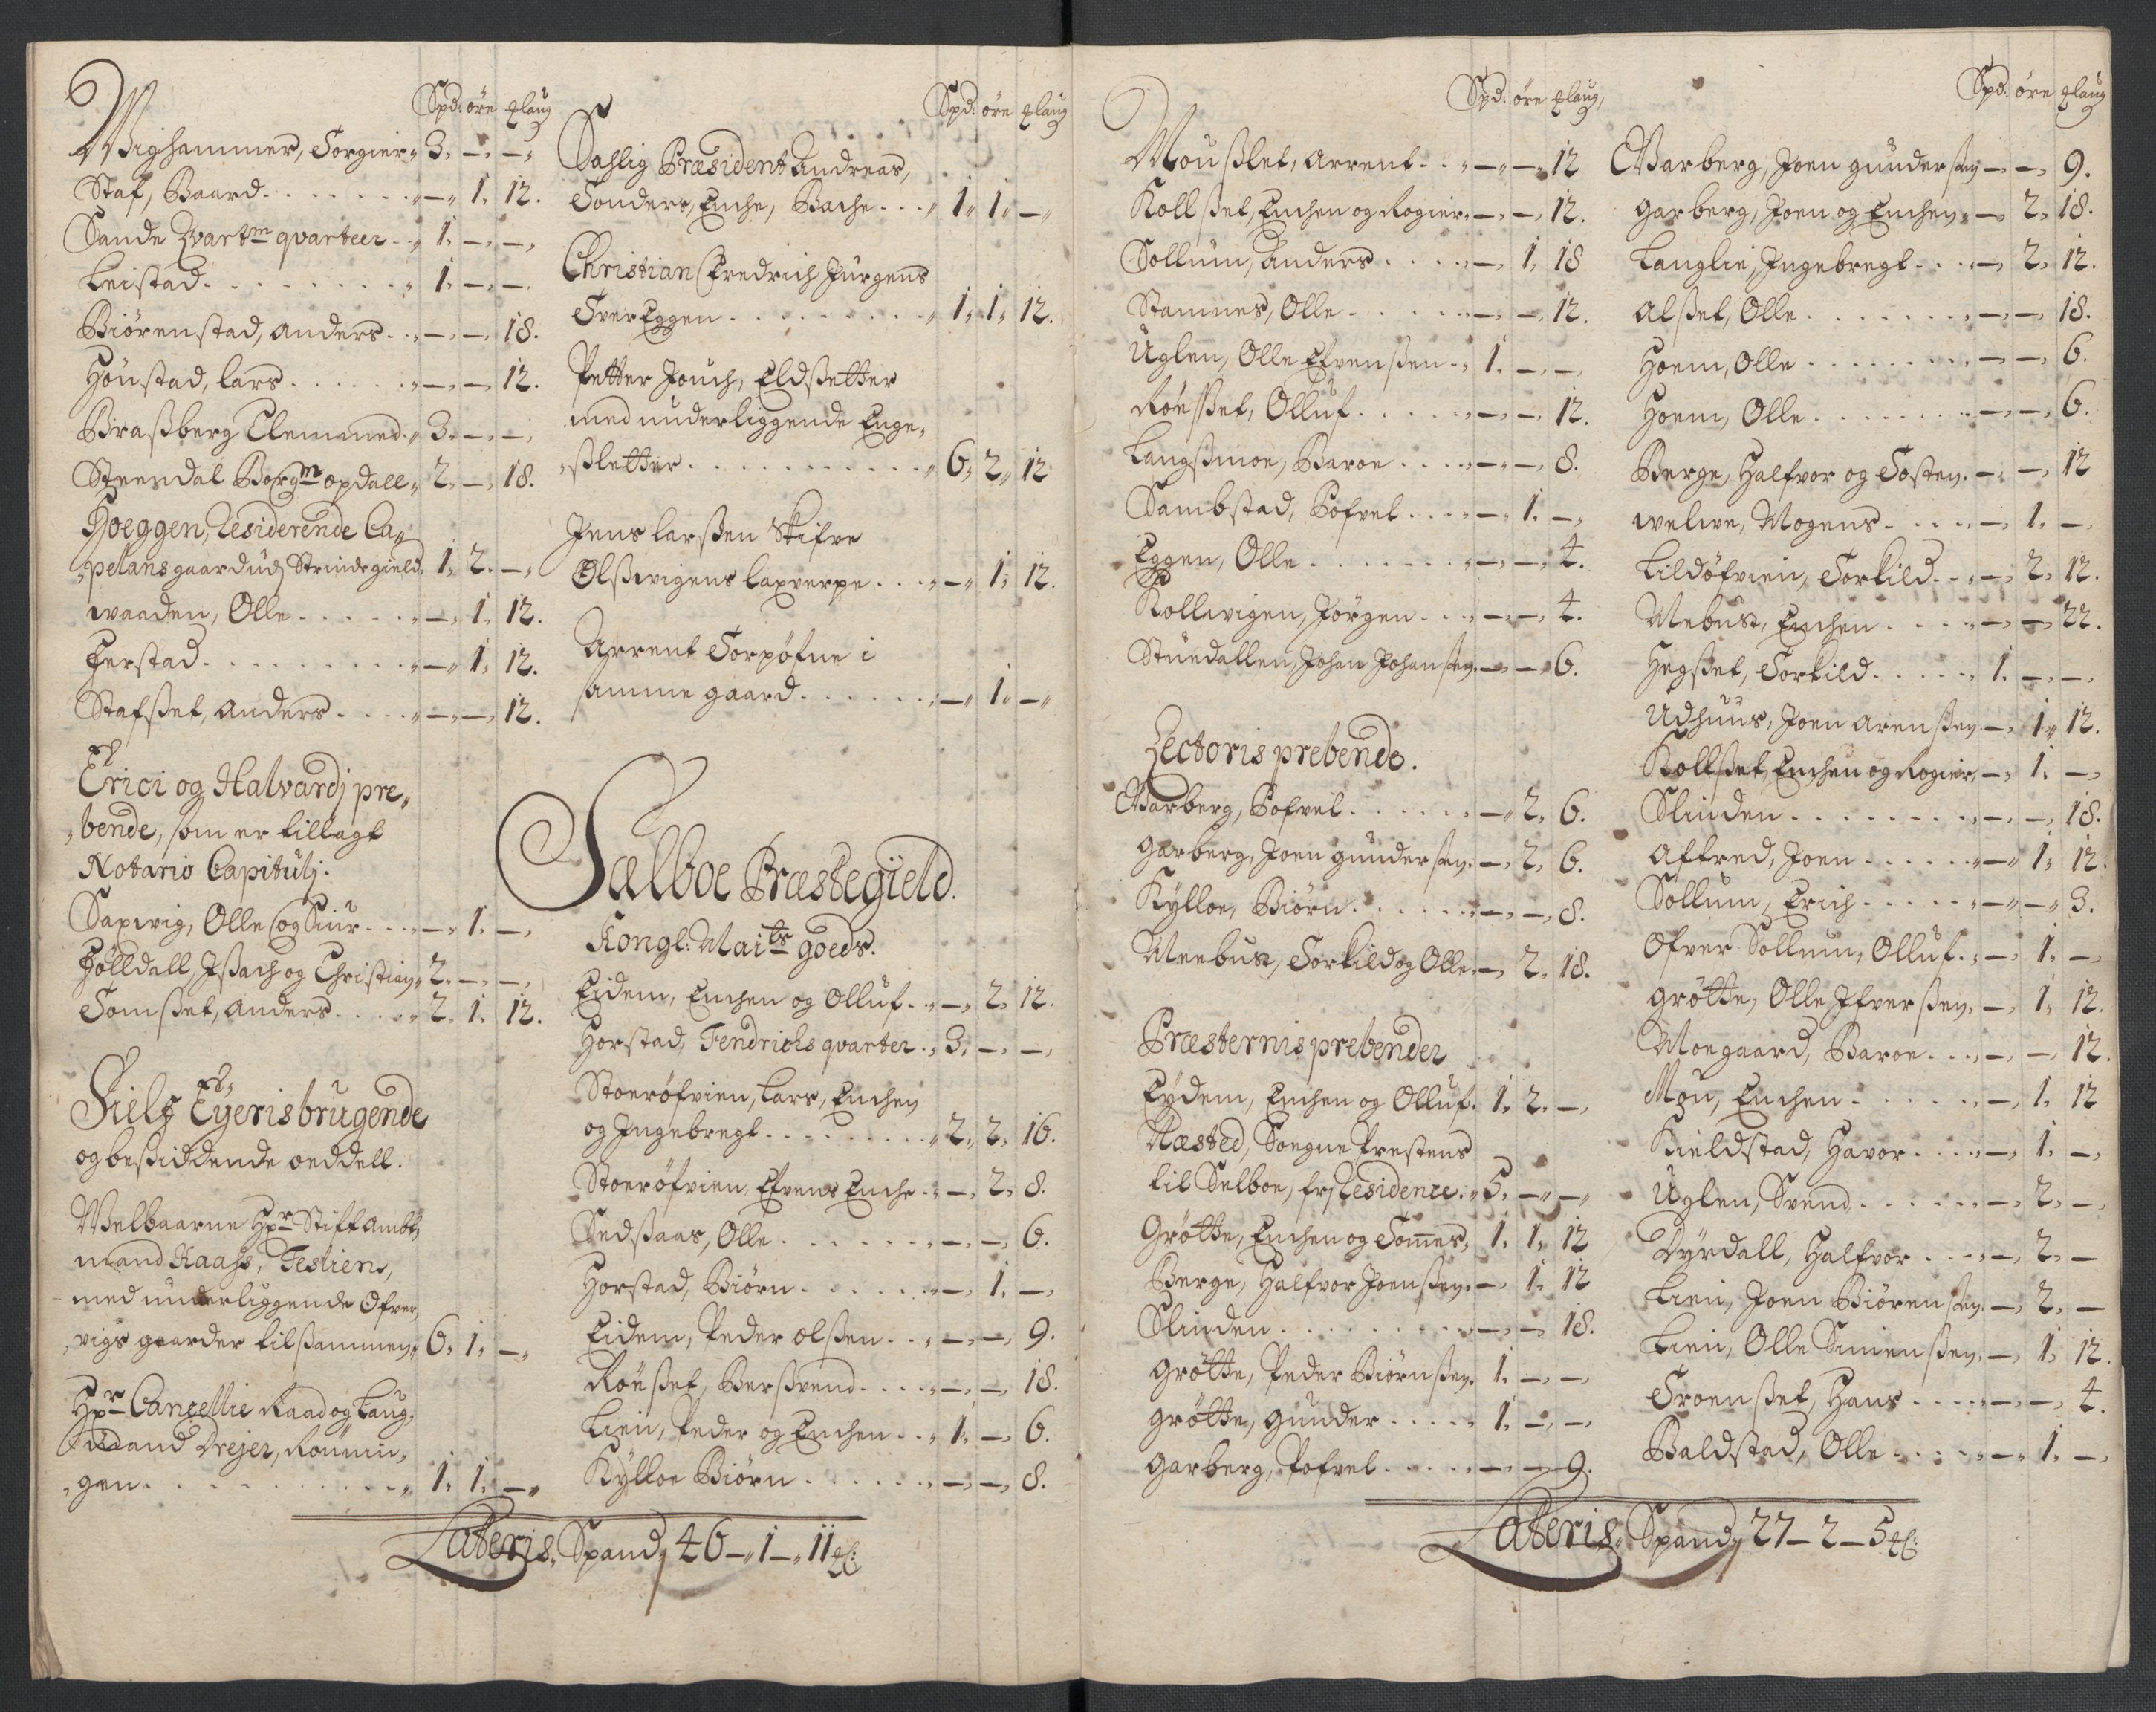 Spd: øre Mlaug
Wighammer, Torgier 3. — —
Staf, Baard — 1. 12.
Sande Qvartm qvarteer 1. — —
Leistad 1. — —
Biørenstad, Anders — — 18.
Høustad, Lars — — 12.
Braßberg Clemmed 3. — —
Steendal Borgm opdall 2. — 18.
Hoeggen, Residerende Ca,,
,,pelans gaard udj Strindegield 1. 2. —
waaden, Olle — 1. 12.
Ferstad — 1. 12.
Stafset, Anders — — 12.
Erici og Halvardj pre,,
,,bende, som er tillagt
Notario Capitulj.
Saxwig, Olle og Siur — 1. —
Hølldall, Isach og Christian 2. — —
Tomset, Anders 2. 1. 12.
Sielf Eyeris brugende
og beßiddende oeddell.
Welbaarne Hr Stiftambt,,
mand Kaass, Testien,
med underliggende Ofver,,
,,vigs gaarder tilsammen 6. 1. —
Hr Cancellie Raad og Laug,,
mand Drejer, Rønnin,,
,,gen 1. 1. —
Spd: øre Mlaug
Sahlig Præsident Andreas
Tønders, Enche, Bache 1. 1. —
Christian Fredrich Jürgens
Tver Eggen 1. 1. 12.
Petter Jouch, Eldsetter
med underliggende Enge,,
,,sletter 6. 2. 12
Jens Larsen Skifre
Ølswigens laxverpe — 1. 12.
Arrent Torpøfne i
samme gaard — 1. —
Sælboe Præstegield.
Kongl: Maits goeds.
Eidem, Enchen og Olluf — 2. 12.
Horstad, Fendrichs qvarter 3. — —
Stoerøfvien, Lars, Enchen
og Ingebregt 2. 2. 16.
Stoerøfvien, Efvens Enche — 2. 8.
Sedsaas, Olle — — 6.
Horstad, Biørn — 1. —
Eidem, Peder olsen — — 9.
Røeset, Bersvend — — 18.
Lien, Peder og Enchen 1. — 6.
Kylloe Biørn — — 8.
Lateris, Spand 46 — 1 — 11 M:
Spd: øre Mlaug
Mouslet, Arrent — — 12
Kollset, Enchen og Rogier — — 12.
Sollum, Anders — 1. 18
Stamnes, Olle — — 12.
Uglen, Olle Efvensen 1. — —
Røesset, Olluf — — 12.
Langsmoe, Baroe — — 8.
Sambstad, Pofvel — 1. —
Eggen, Olle — — 4.
Kollwigen, Jørgen — — 4.
Stuedallen, Johan Johansen — — 6.
Lectoris prebende.
Garberg, Pofvel — 2. 6.
Garberg, Joen gundersen — 2. 6.
Kylloe, Biørn — — 8.
Meebust, Torkild og Olle — 2. 18.
Præsternis prebender
Eydem, Enchen og Olluf 1. 2. —
Næsted, Soegne Prestens
til Selboe, fri Residence 5. — —
Grøtte, Enchen og Tomes 1. 1. 12
Berge, Halfvor Joensen — 1. 12
Slinden — — 18.
Grøtte, Peder Biørnsen 1. — —
Grøtte, Gunder 1. — —
Garberg, Pofvel — — 9.
Spd: øre Mlaug
Garberg, Joen gundersen — — 9.
Garberg, Joen og Enchen — 2. 18.
Langlie, Ingebregt — 2. 12.
Alset, Olle — — 18.
Hoem, Olle — — 6.
Hoem, Olle — — 6.
Berge, Halfvor og Tosten — — 12
Welwe, Mogens — 1. —
Lildøfvien, Torkild — 2. 12.
Mebust, Enchen — — 22.
Hegset, Torkild 1. — —
Udhuus, Joen Arensen — 1. 12.
Kollset, Enchen og Rogier — 1. —
Slinden — — 18.
Aftred, Joen — 1. 12.
Sollum, Erich — — 3.
Ofver Sollum, Olluf — 1. —
Grøtte, Olle Ifversen — 1. 12.
Moegaard, Baroe — — 12.
Mou, Enchen — 1. 12
Kieldstad, Havor — 1. —
Uglen, Svend — 2. —
Dyrdall, Halfvor — 2. —
Lien, Joen Biørensen — 2. —
Lien, Olle Simensen — 1. 12.
Troenset, Hans — — 4.
Baldstad, Olle — 1. —
Lateris, Spand 27 — 2 — 5 M: